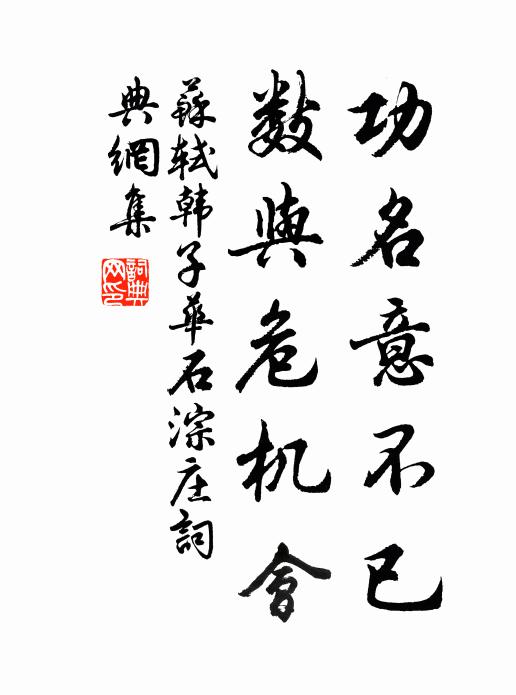 功名意不已
数與危机會
蘇轼韩子華石淙庄詞
典網集
詞典网印